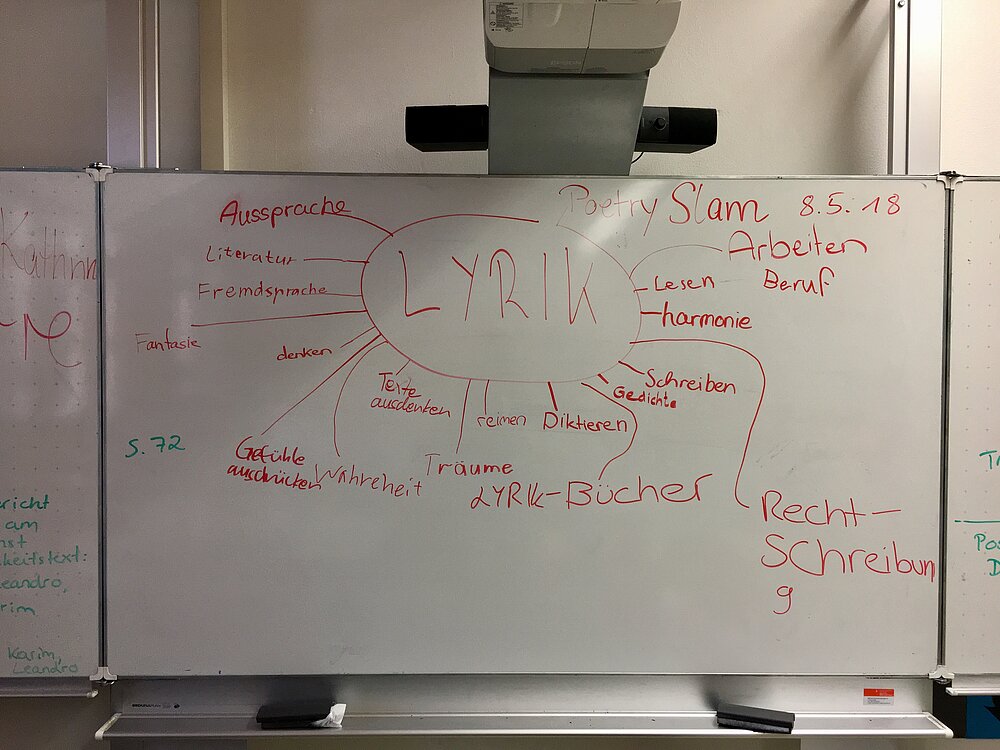 Poetry Slam 8.5.18
LYRIK
Aussprache
Literatur
Fremdsprache
Fantasie
denken
Gefühle
ausdrücken
Wahreheit
Texte
ausdenken
Träume
reimen
Diktieren
LYRIK-Bücher
Gedichte
Schreiben
Recht-
Schreibun
g
harmonie
Lesen
Arbeiten
Beruf
S. 72
ericht
am
nst
keitstext:
eandro,
rim
Karim,
Leandro
EPSON